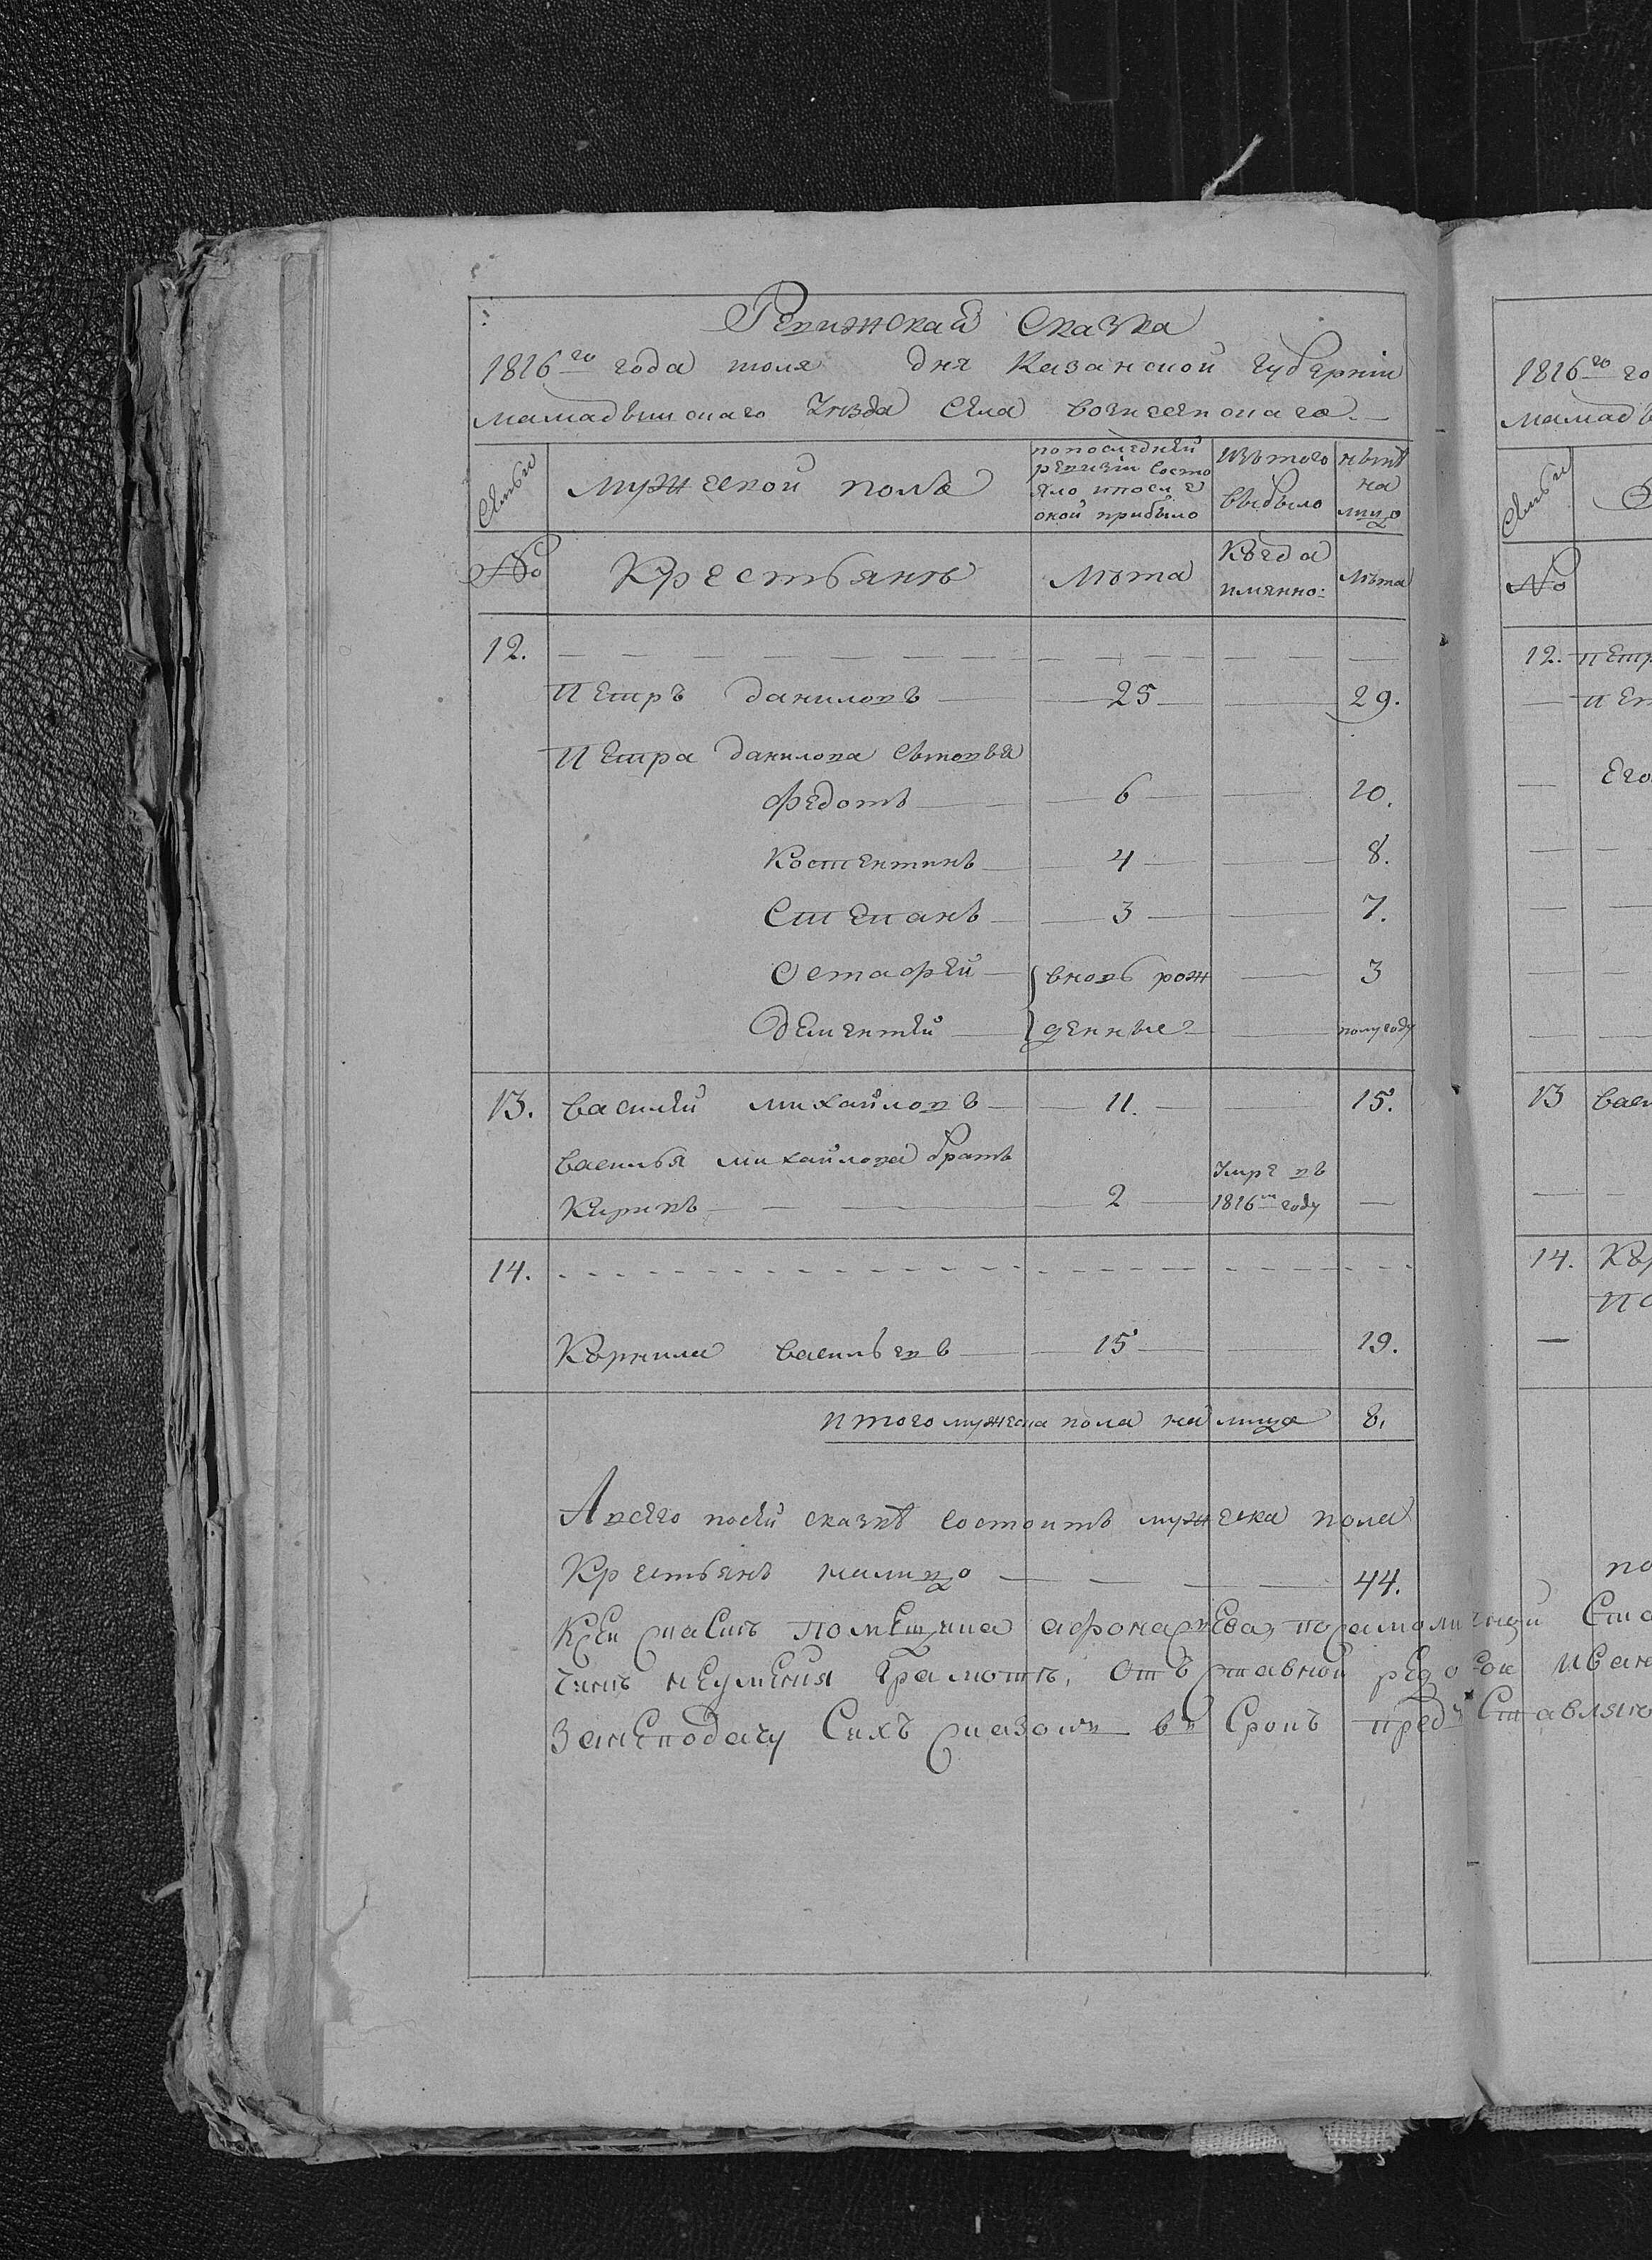 Ревижская Сказка
1816го года июля дня Казанской губернии
мамадышскаго уезда Села вознесенскаго
Семьи
мужеской полъ
по последней ревизіи состояло и после оной прибыло
Изъ того выбыло
ныне на лицо
№
Крестьянъ
Лѣта
Когда имянно:
Лѣта
12.
Петръ даниловъ 25 29.
Петра данилова сыновья
Федотъ 6 10.
Костентинъ 4 8.
Степанъ 3 7.
Остафей вновь рож 3
Дементей денные полугоду
13. василей михайловъ 11. 15.
василья михайлова братъ
Кириъ 2 умре въ 1816м году
14.
Корнила васильевъ 15 19.
итого мужеска пола на лицо 8.
А всего посей сказкѣ состоитъ мужеска пола
Крестьянъ налицо 44.
Ксей скаскѣ помещика
неумения Грамоте,
Занеподачу Сихъ сказокъ въ Срокъ пред Ставляю
1816го го
мамадв
Семьи
№
12. петр
Его
13 васи
14. Кор